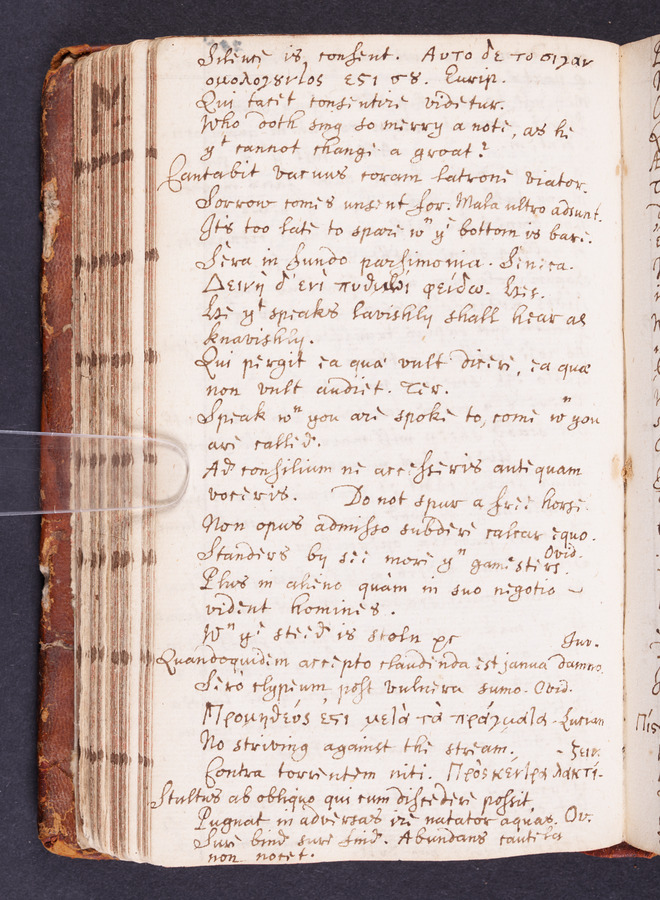 Silence is consent. Αυτο δε το σιγαν
ομολογουντος εστι σου. Eurip.
Qui tacet consentire videtur.
Who doth sing so merry a note, as he
yt cannot change a groat?
Cantabit vacuus coram latrone viator.
Sorrow comes unsent for. Mala ultro adsunt.
Its too late to spare wn ye bottom is bare.
Sera in fundo parsimonia. Seneca.
Δεινὴ δ' ενὶ πυθμένι φείδω. Hes.
He yt speaks lavishly shall hear as
knavishly.
Qui pergit ea quæ vult dicere, ea quæ
non vult audiet. Ter.
Speak wn you are spoke to, come wn you
are called.
Ad consilium ne accesseris antequam
voceris. Do not spur a free horse.
Non opus admisso subdere calcar equo.
Ovid.
Standers by see more yn gamesters.
Plus in alieno quàm in suo negotio
vident homines.
Wn ye steed is stoln &c Juv.
Quandoquidem accepto claudenda est janua damno.
Serò clypeum post vulnera sumo. Ovid.
Προμηθεύς εστι μετὰ τὰ πράγματα. Lucian
No striving against the stream. - ζειν.
Contra torrentem niti. Πρὸς κέντρα λακτί-
Stultus ab obliquo qui cum discedere possit,
Pugnat in adversas ire natator aquas. Ov.
Sure bind sure find. Abundans cautela
non nocet.
Πισ